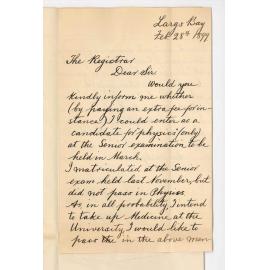 Largs Bay
Feb 28th 1899
The Registrar
Dear Sir
Would you
kindly inform me whether
(by paying an extra fee for in-
stance) I could enter as a
candidate for physics (only)
at the Senior examination to be
held in March.
I matriculated at the Senior
exam. held last November, but
did not pass in Physics.
As, in all probability I intend
to take up Medicine at the
University I would like to
pass the in the above men